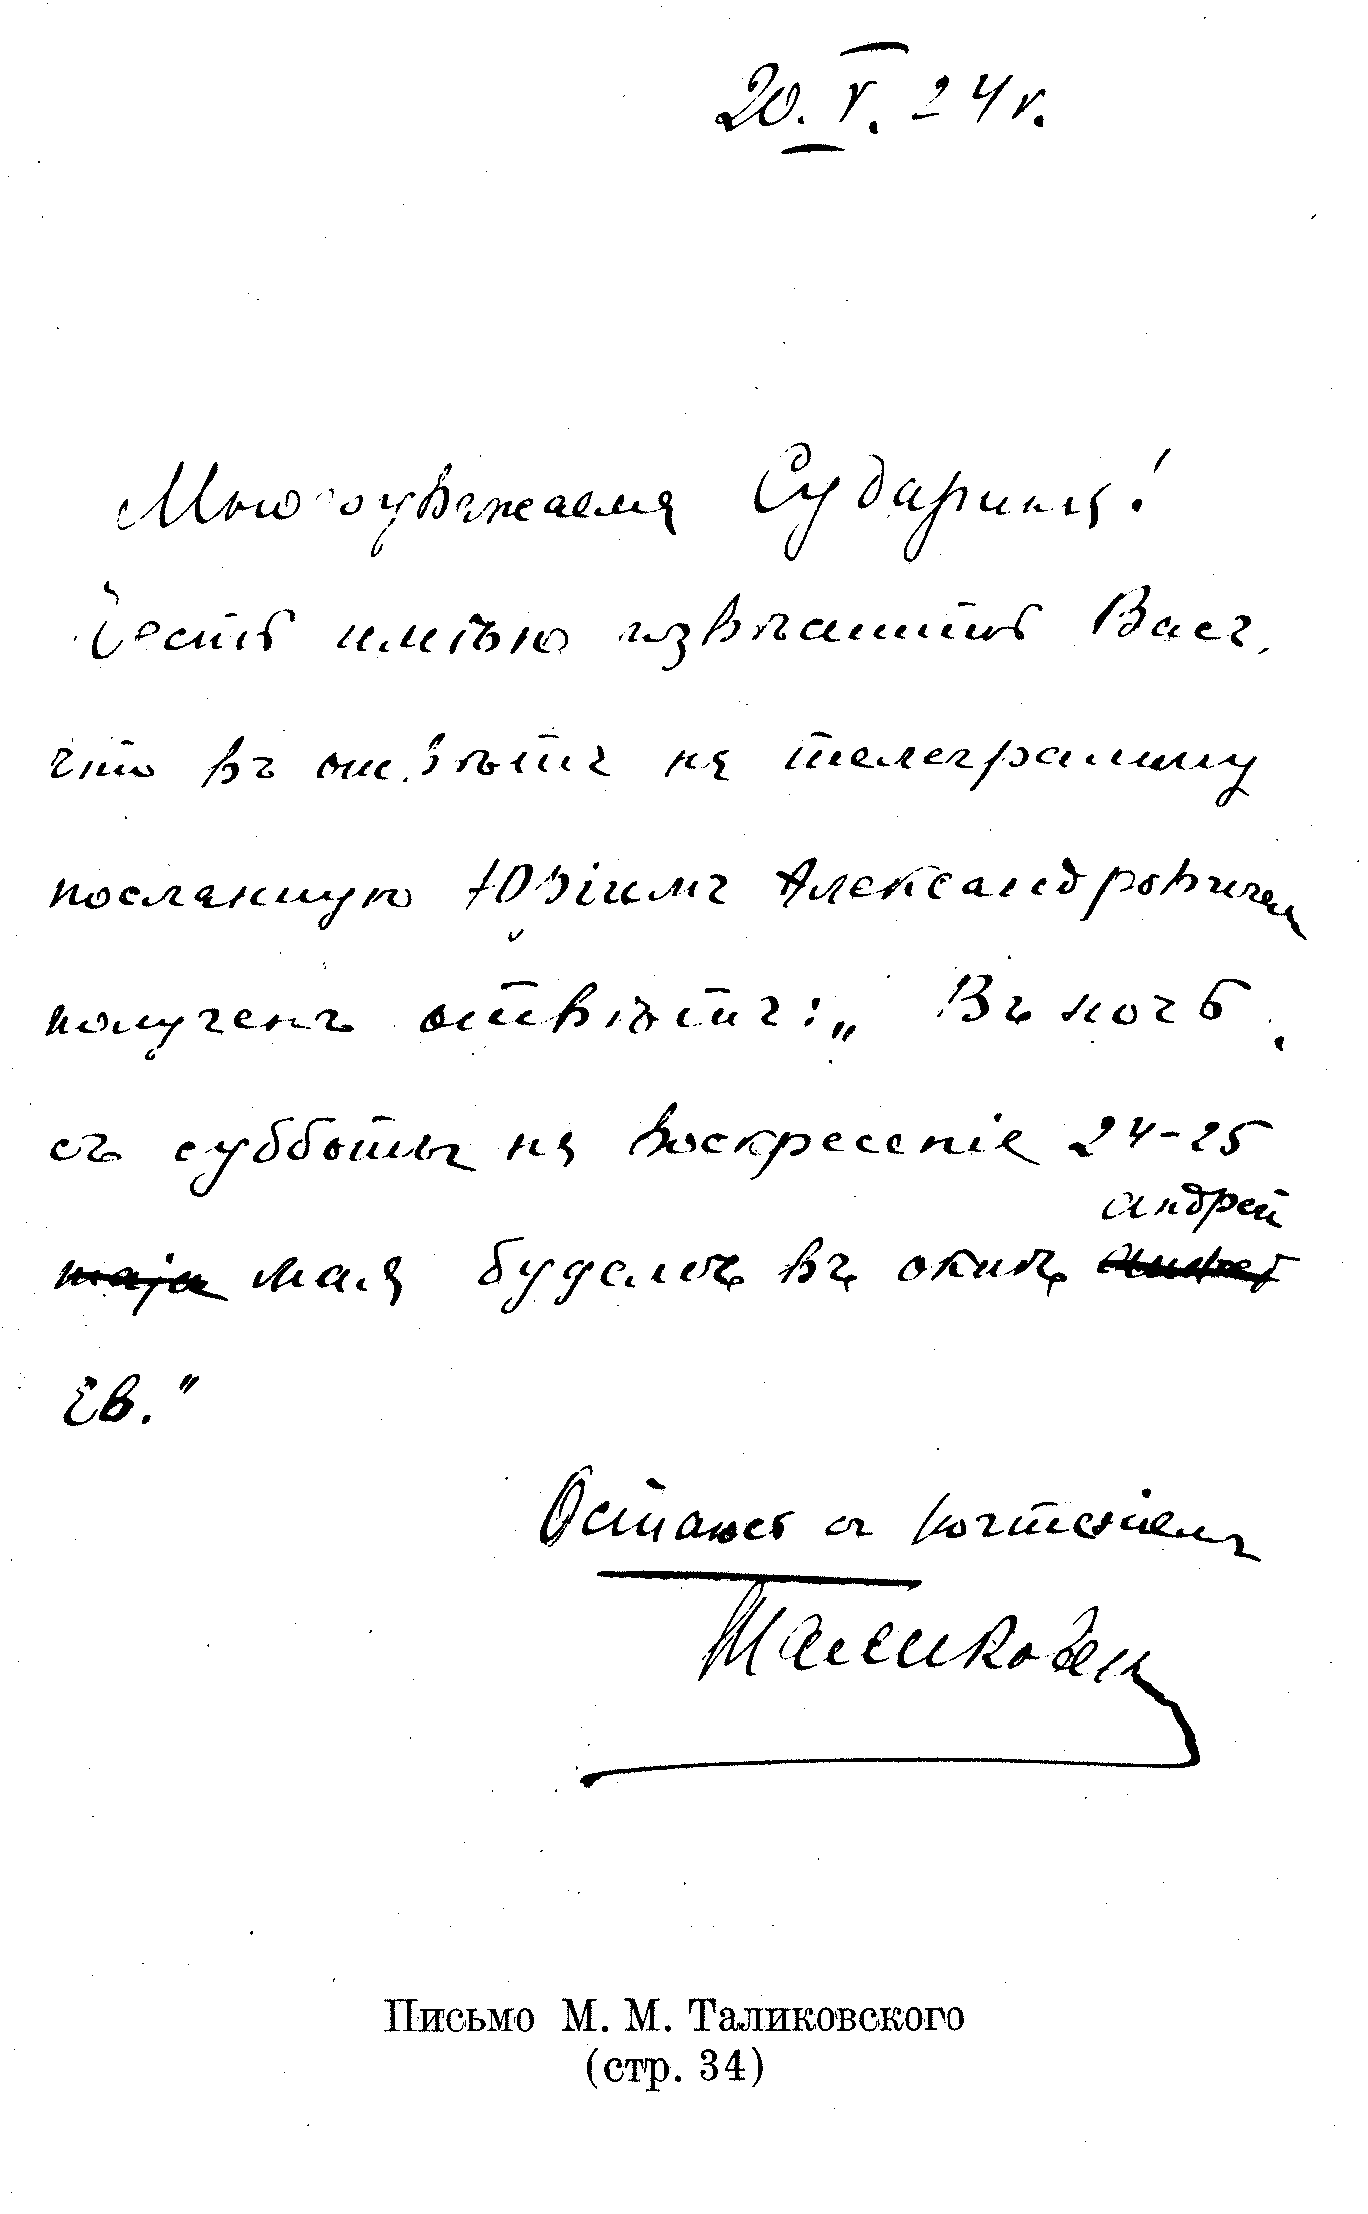 20. V. 24 г.
Многоуважаемая Сударыня!
Честь имѣю извѣстить Васъ,
что въ отвѣтъ на телеграмму
посланную Юріемъ Александровичем
полученъ отвѣтъ: „ Въ ночь
съ субботы на воскресеніе 24-25
андрей
маja мая будемъ въ окнѣ
Ев.“
Остаюсь съ почтеніемъ
Таликовски
Письмо М. М. Таликовского
(стр. 34)